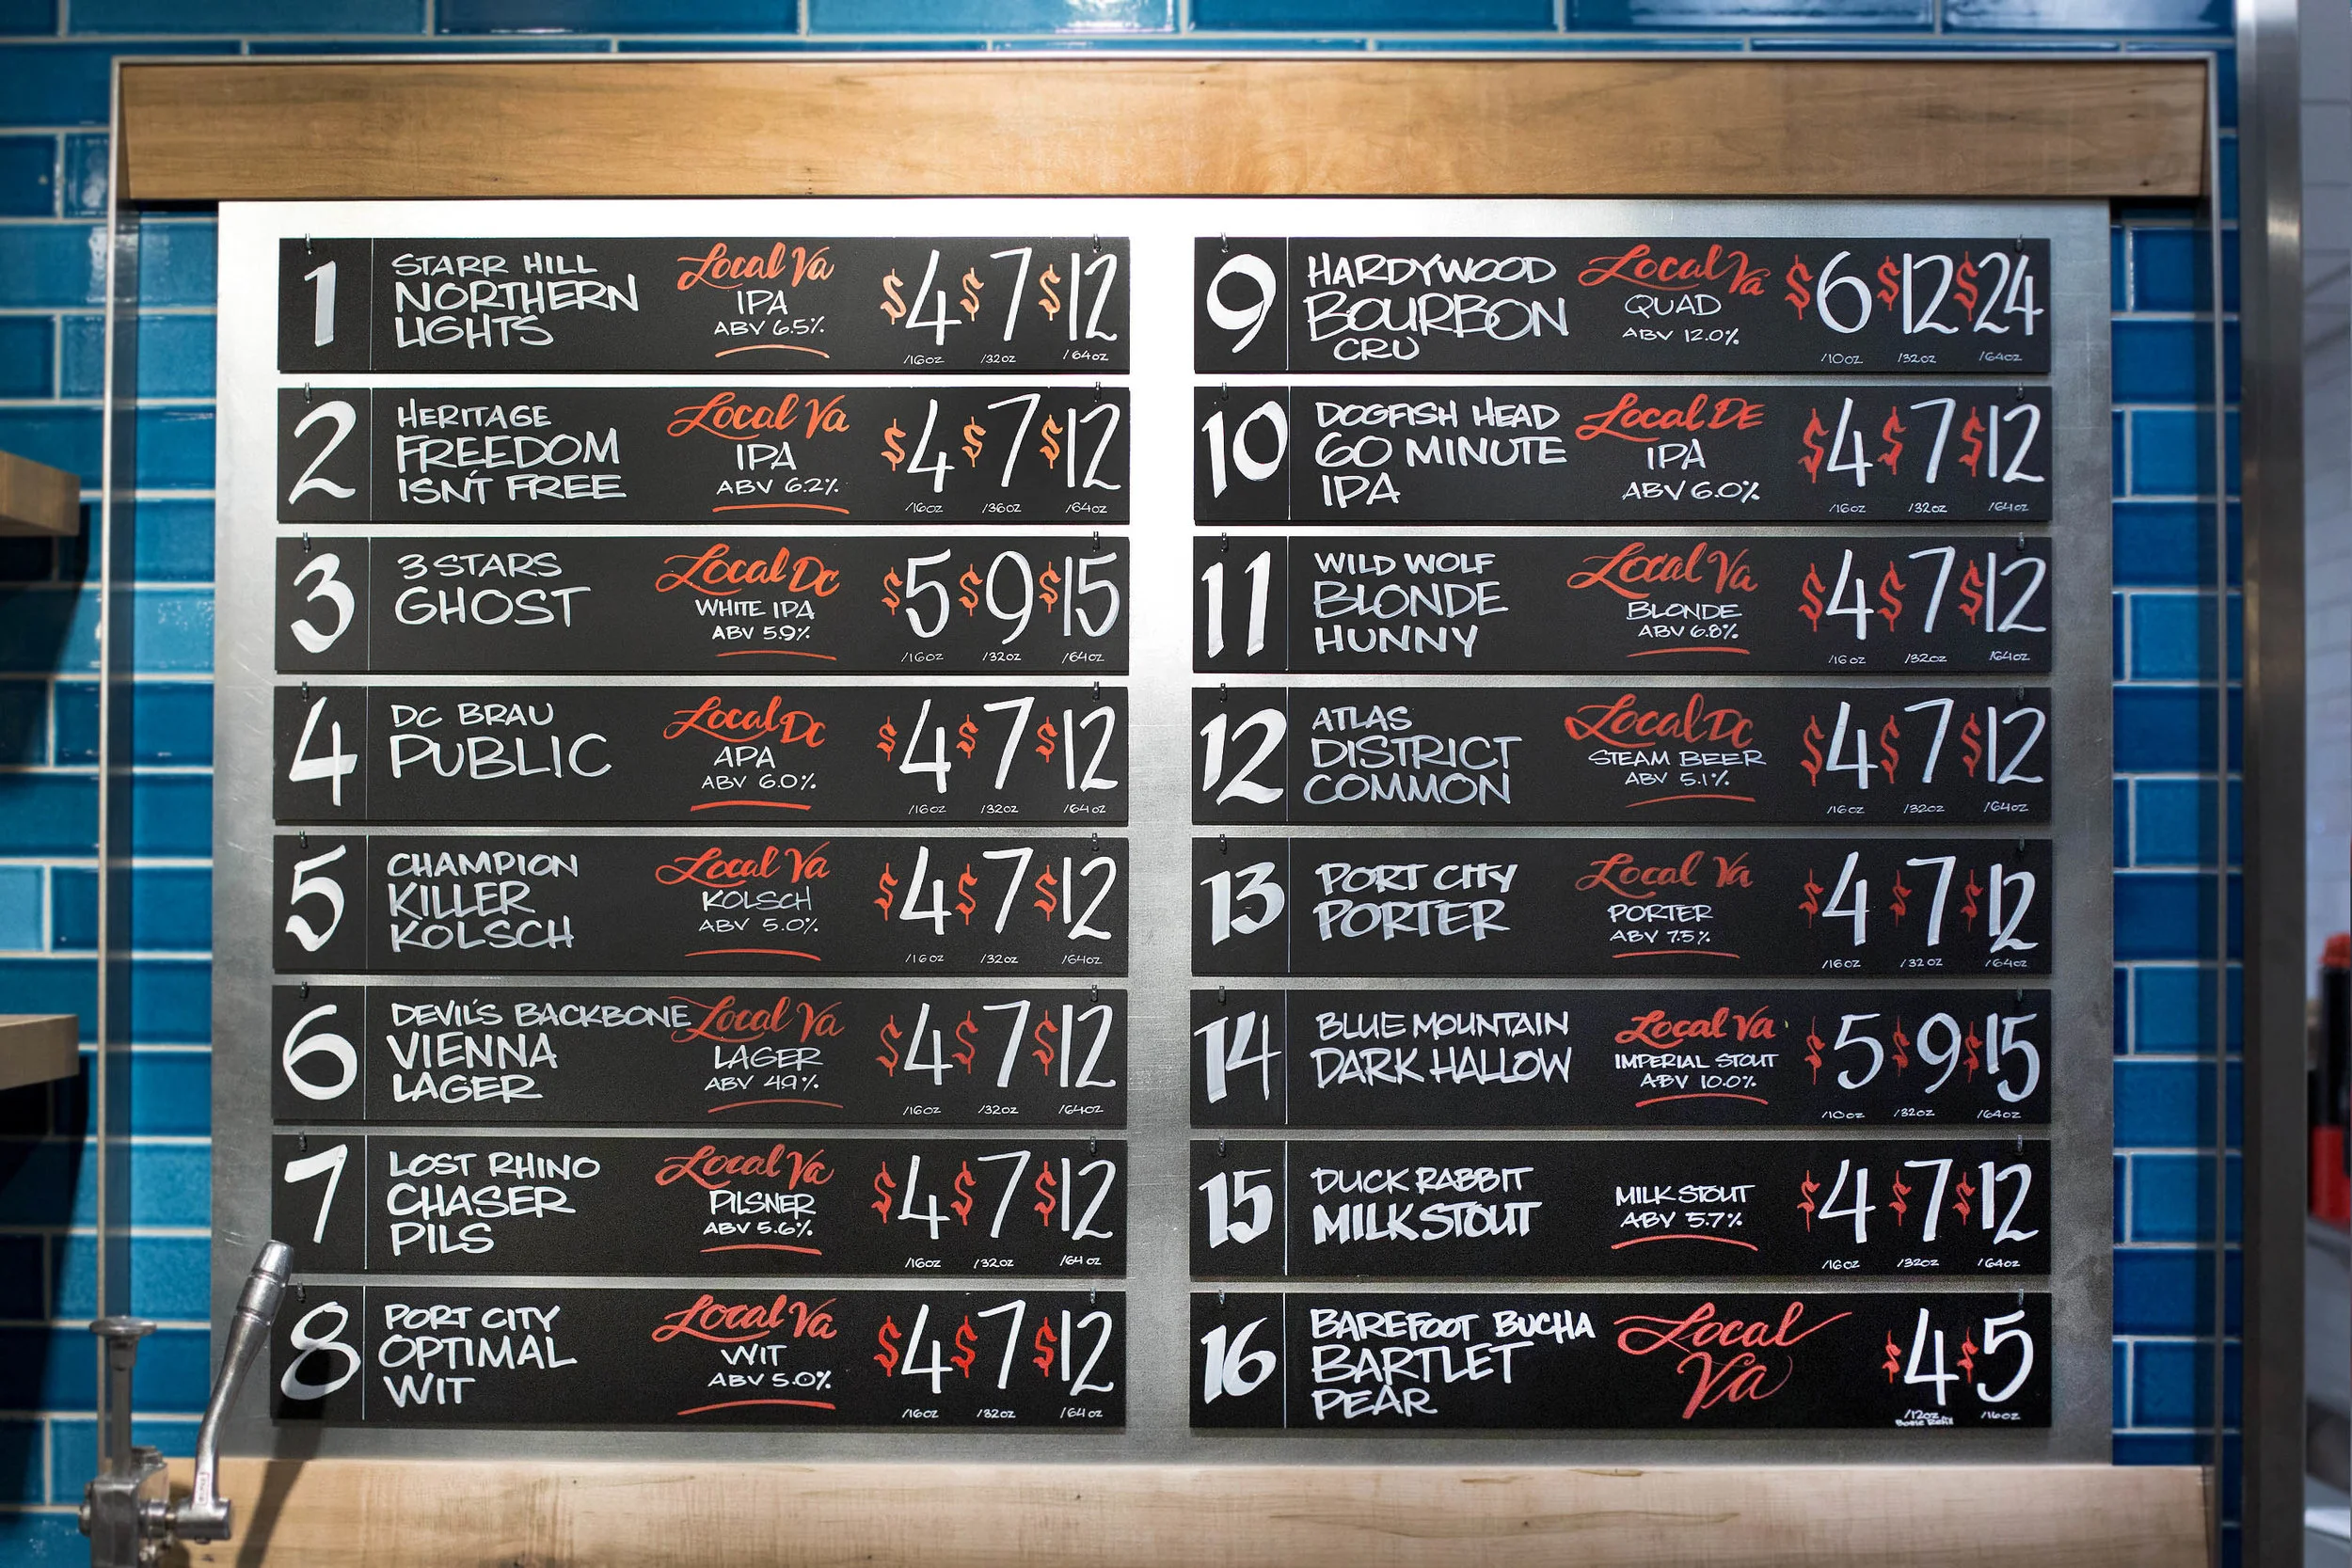 1
STARR HILL
NORTHERN
LIGHTS
Local Va
IPA
ABV 6.5%
$4 $7 $12
/16oz /32oz /64oz
2
HERITAGE
FREEDOM
ISN'T FREE
Local Va
IPA
ABV 6.2%
$4 $7 $12
/16oz /36oz /64oz
3
3 STARS
GHOST
Local DC
WHITE IPA
ABV 5.9%
$5 $9 $15
/16oz /32oz /64oz
4
DC BRAU
PUBLIC
Local DC
APA
ABV 6.0%
$4 $7 $12
/16oz /32oz /64oz
5
CHAMPION
KILLER
KOLSCH
Local Va
KOLSCH
ABV 5.0%
$4 $7 $12
/16oz /32oz /64oz
6
DEVIL'S BACKBONE
VIENNA
LAGER
Local Va
LAGER
ABV 4.9%
$4 $7 $12
/16oz /32oz /64oz
7
LOST RHINO
CHASER
PILS
Local Va
PILSNER
ABV 5.6%
$4 $7 $12
/16oz /32oz /64oz
8
PORT CITY
OPTIMAL
WIT
Local Va
WIT
ABV 5.0%
$4 $7 $12
/16oz /32oz /64oz
9
HARDYWOOD
BOURBON
CRU
Local Va
QUAD
ABV 12.0%
$6 $12 $24
/10oz /32oz /64oz
10
DOGFISH HEAD
60 MINUTE
IPA
Local DE
IPA
ABV 6.0%
$4 $7 $12
/16oz /32oz /64oz
11
WILD WOLF
BLONDE
HUNNY
Local Va
BLONDE
ABV 6.8%
$4 $7 $12
/16oz /32oz /64oz
12
ATLAS
DISTRICT
COMMON
Local DC
STEAM BEER
ABV 5.1%
$4 $7 $12
/16oz /32oz /64oz
13
PORT CITY
PORTER
Local Va
PORTER
ABV 7.5%
$4 $7 $12
/16oz /32oz /64oz
14
BLUE MOUNTAIN
DARK HALLOW
Local Va
IMPERIAL STOUT
ABV 10.0%
$5 $9 $15
/10oz /32oz /64oz
15
DUCK RABBIT
MILK STOUT
MILK STOUT
ABV 5.7%
$4 $7 $12
/16oz /32oz /64oz
16
BAREFOOT BUCHA
BARTLET
PEAR
Local
Va
$4 $5
/12oz /16oz
Bottle Refill